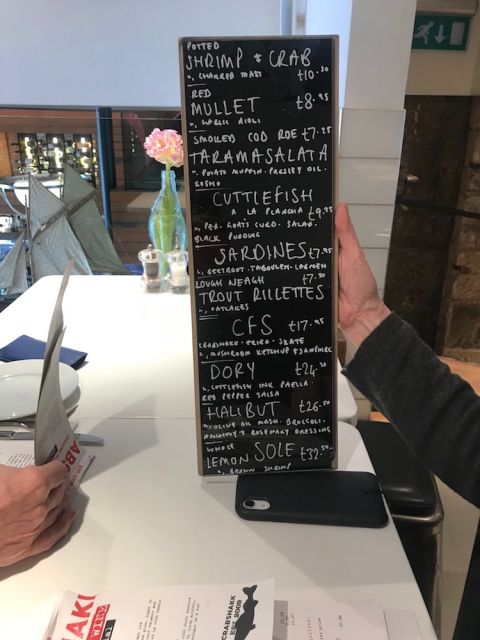 POTTED
SHRIMP & CRAB
", CHARRED TOAST £10.50
RED
MULLET £8.95
", GARLIC AIOLI
SMOKED COD ROE £7.25
TARAMASALATA
", POTATO MUFFIN. PARSLEY OIL.
CUTTLEFISH
A LA PLANCHA £9.95
", PEA. GOATS CURD. SALAD.
BLACK PUDDING
SARDINES £7.95
", BEETROOT. TABOULEH.
LOUGH NEAGH £7.50
TROUT RILLETTES
", OATCAKES
CFS £17.95
CRABSHAKK. FRIED. SKATE
", MUSHROOM KETCHUP & SAMPHIRE
DORY £24.50
", CUTTLEFISH INK PAELLA
RED PEPPER SALSA
HALIBUT £26.50
", OLIVE OIL MASH. BROCCOLI.
ANCHOVY & ROSEMARY DRESSING
WHOLE
LEMON SOLE £32.50
", BROWN SHRIMP
CRABSHAKK
EST. 2009